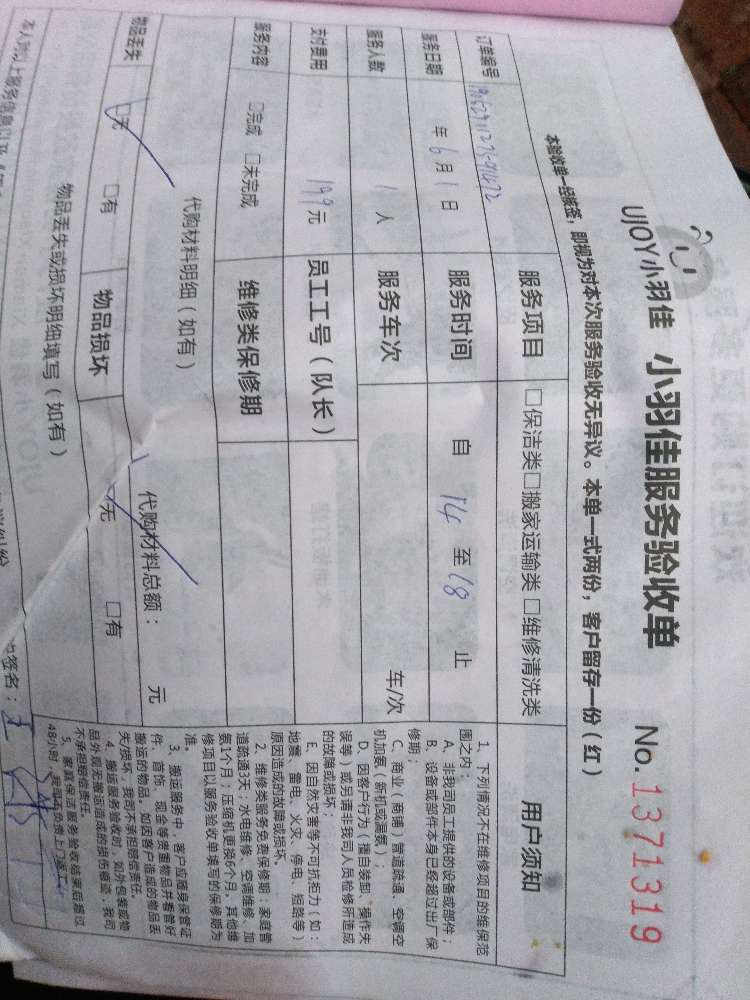 UJOY小羽佳 小羽佳服务验收单 No.1371319
本验收单一经签, 即视为对本次服务验收无异议。本单一式两份, 客户留存一份(红)
订单编号 服务项目 □保洁类□搬家运输类 □维修清洗类
服务日期 年 6 月 1 日 服务时间 自 14 至 18 止
服务人数 1 人 服务车次 车/次
支付费用 199 元 员工工号(队长)
服务内容 □完成 □未完成 维修类保修期
代购材料明细(如有) 代购材料总额: 元
物品丢失 □无 □有 物品损坏 □无 □有
物品丢失或损坏明细填写(如有)
签名:
用户须知
1、下列情况不在维修项目的维保范
围之内:
A、非我司员工提供的设备或部件;
B、设备或部件本身已经超过出厂保
修期;
C、商业(商铺)管道疏通、空调空
机加氨(新机或漏氨);
D、因客户行为(擅自装卸、操作失
误等)或另请非我司人员检修所造成
的故障或损坏;
E、因自然灾害等不可抗拒力(如:
地震、雷电、火灾、停电、短路等)
原因造成的故障或损坏。
2、维修类服务免费保修期:家庭管
道疏通3天; 水电维修、空调维修、加
氨1个月; 压缩机更换6个月。其他维
修项目以服务验收单填写的保修期为
准。
3、搬运服务中, 客户应随身保管证
件、首饰、现金等贵重物品并看管好
搬运的物品。如因客户造成的物品丢
失/损坏, 我司不承担赔偿责任。
4、搬运服务验收时, 如外包装或物
品外观无搬运造成的损伤痕迹, 我司
不承担赔偿责任。
5、家具保洁服务验收结束后超过
48小时, 我司不负责上门返工